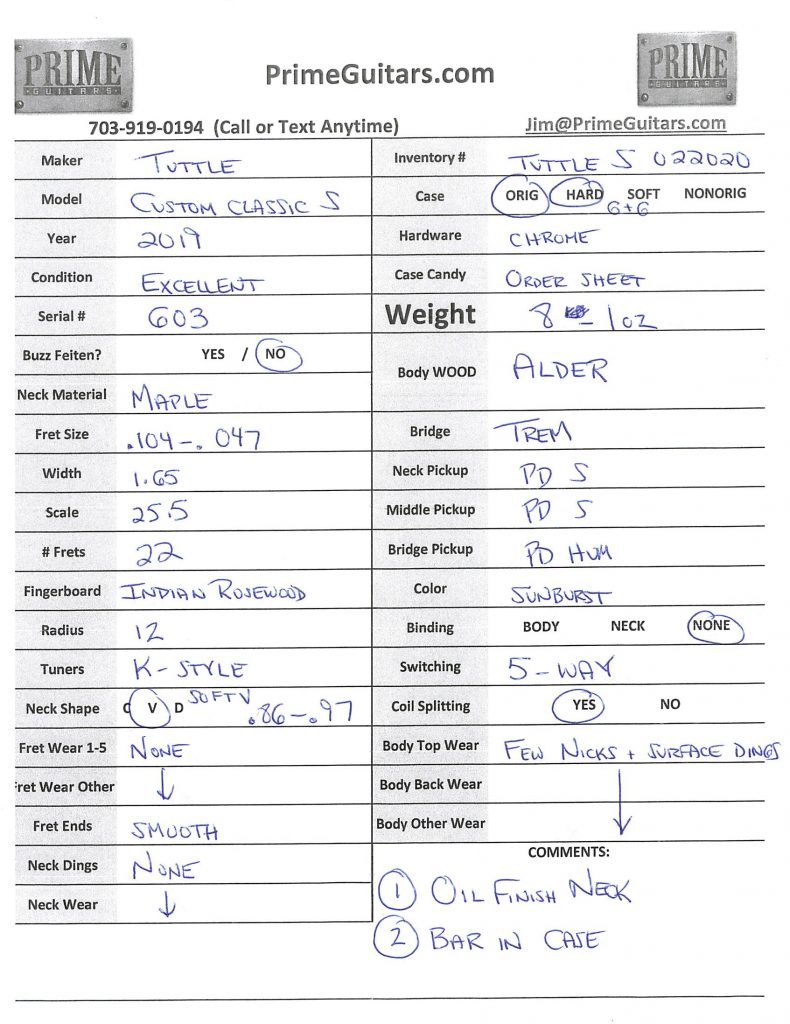 PRIME
GUITARS
PrimeGuitars.com
PRIME
GUITARS
703-919-0194 (Call or Text Anytime)
Jim@PrimeGuitars.com
Maker TUTTLE
Model CUSTOM CLASSIC S
Year 2019
Condition EXCELLENT
Serial # 603
Buzz Feiten? YES / NO
Neck Material MAPLE
Fret Size .104-.047
Width 1.65
Scale 25.5
# Frets 22
Fingerboard INDIAN ROSEWOOD
Radius 12
Tuners K-STYLE
Neck Shape C V D SOFT V .86-.97
Fret Wear 1-5 NONE
Fret Wear Other ↓
Fret Ends SMOOTH
Neck Dings NONE
Neck Wear ↓
Inventory # TUTTLE S 022020
Case ORIG HARD SOFT NONORIG
G+G
Hardware CHROME
Case Candy ORDER SHEET
Weight 8 1oz
Body WOOD ALDER
Bridge TREM
Neck Pickup PD S
Middle Pickup PD S
Bridge Pickup PD HUM
Color SUNBURST
Binding BODY NECK NONE
Switching 5-WAY
Coil Splitting YES NO
Body Top Wear FEW NICKS + SURFACE DINGS
Body Back Wear
Body Other Wear ↓
COMMENTS:
1 OIL FINISH NECK
2 BAR IN CASE